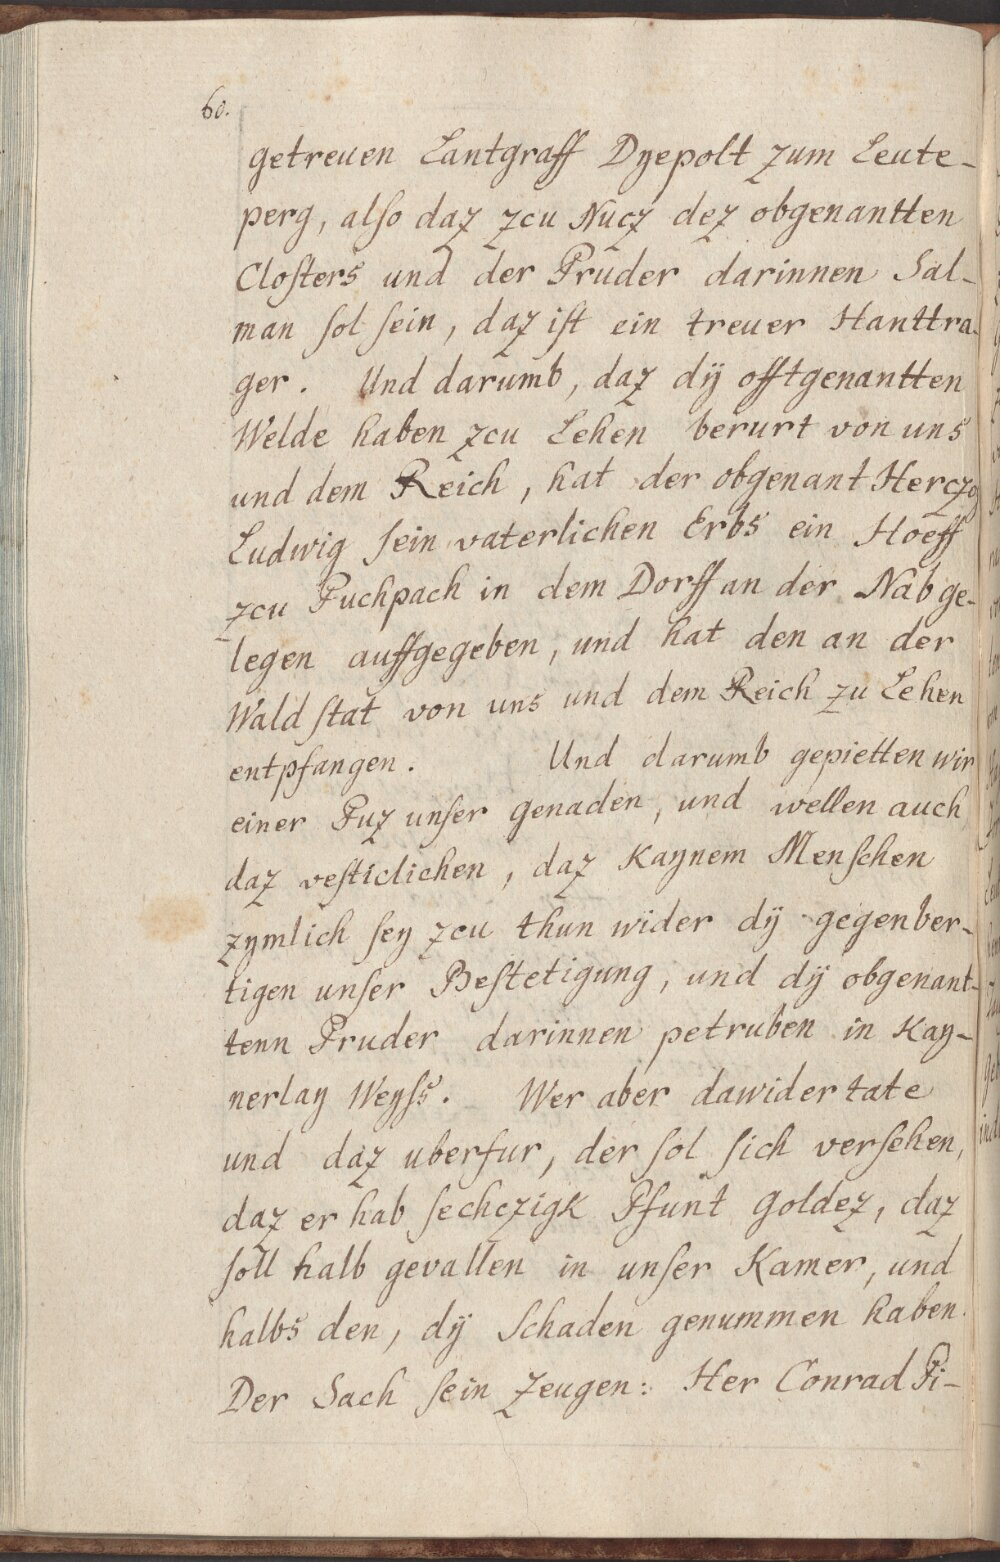 60.
getreuen Lantgraff Dyepolt zum Leute-
perg, also daz zcu Nucz dez obgenantten
Closters und der Pruder darinnen Sal-
man sol sein, daz ist ein treuer Hanttra-
ger. Und darumb, daz dÿ offtgenantten
Welde haben zcu Lehen berurt von uns
und dem Reich, hat der obgenant Herczog
Ludwig sein vaterlichen Erbs ein Hoeff
zcu Puchpach in dem Dorff an der Nab ge-
legen auffgegeben, und hat den an der
Wald stat von uns und dem Reich zu Lehen
entpfangen. Und darumb gepietten wir
einer Puz unser genaden, und wellen auch
daz vesticlichen, daz Kaynem Menschen
zymlich sey zcu thun wider dÿ gegenber-
tigen unser Bestetigung, und dÿ obgenant-
tenn Pruder darinnen petruben in Kay-
nerlay Weyss. Wer aber dawider tate
und daz uberfur, der sol sich versehen,
daz er hab sechczigk Pfunt Goldez, daz
soll halb gevallen in unser Kamer, und
halbs den, dÿ Schaden genummen haben.
Der Sach sein Zeugen: Her Conrad Pi-